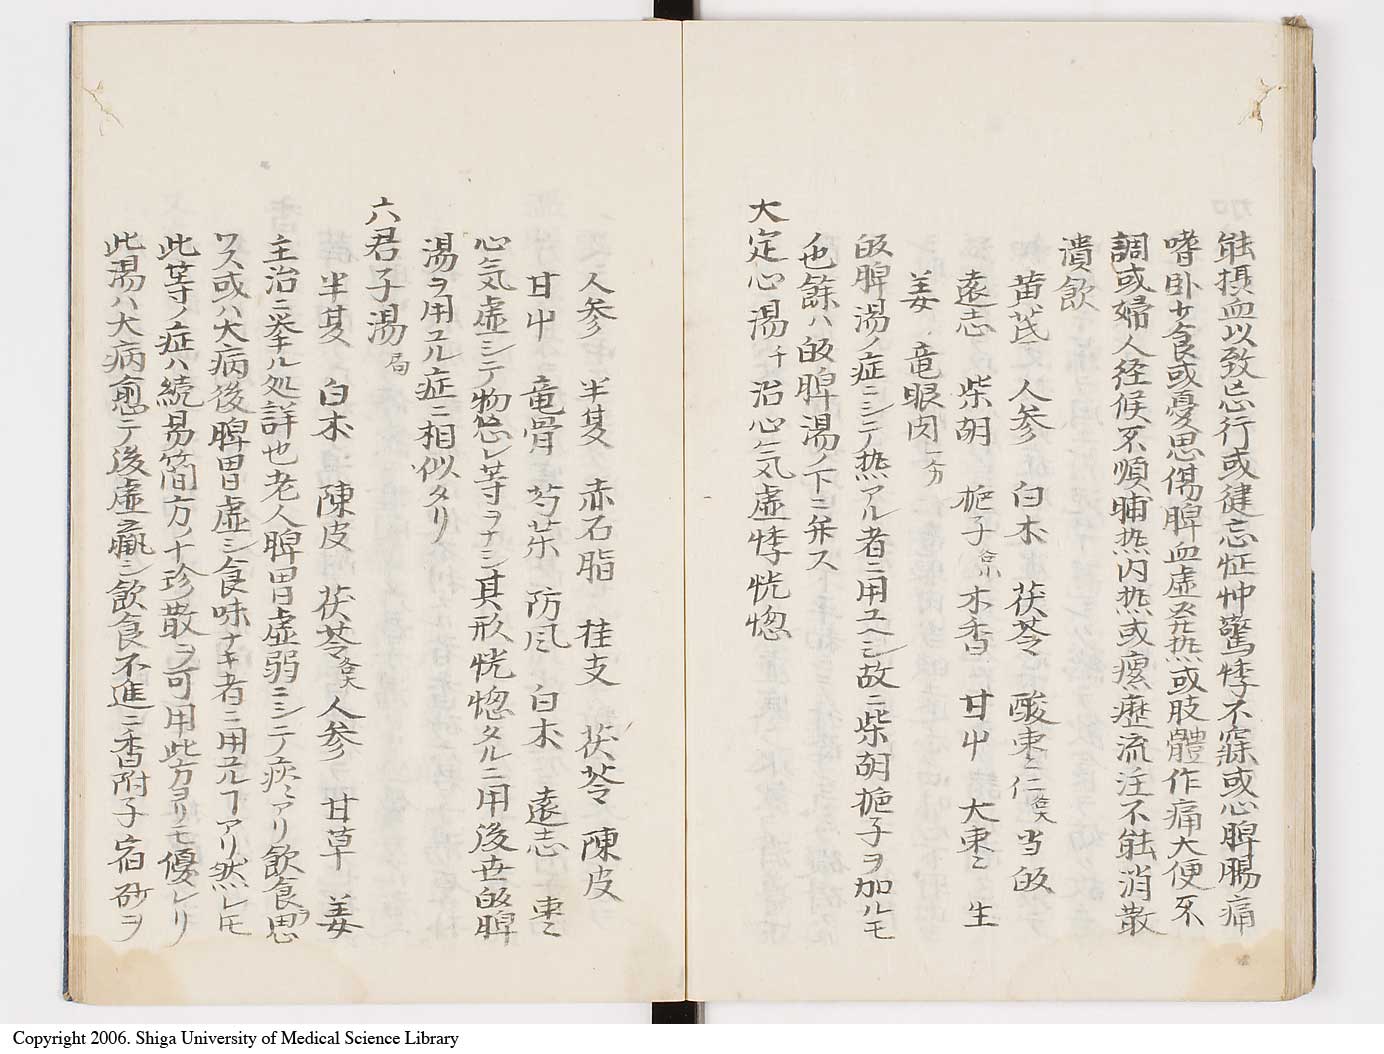 能摂血以致妄行或健忘怔忡驚悸不寐或心脾腸痛
嗜卧少食或憂思傷脾血虚発熱或肢體作痛大便不
調或婦人径候不順晡熱内熱或瘰癧流注不能消散
潰飲
黄芪 人参 白朮 茯苓 酸棗仁各大 当皈
遠志 柴胡 梔子各小 木香 甘艸 大棗 生
姜 竜眼肉一ケ
皈脾湯ノ症ニシテ熱アル者ニ用ユヘシ故ニ柴胡梔子ヲ加ルモ
也餘ハ皈脾湯ノ下ニ弁ス
大定心湯千治心気虚悸恍惚
人参 半夏 赤石脂 桂支 茯苓 陳皮
甘艸 竜骨 芍薬 防風 白朮 遠志 棗
心気虚シテ物怱レ等ヲナシ其形恍惚タルニ用後世皈脾
湯ヲ用ユル症ニ相似タリ
六君子湯局
半夏 白朮 陳皮 茯苓各大 人参 甘草 姜
主治ニ挙ル処詳也老人脾胃虚弱ニシテ痰アリ飲食ヲ思
ワス或ハ大病後脾胃虚シ食味ナキ者ニ用ユルヿアリ然レモ
此等ノ症ハ続易簡方ノ十珍散ヲ可用此方ヨリモ優レリ
此湯ハ大病愈テ後虚羸シ飲食不進ニ香附子宿砂ヲ
Copyright 2006. Shiga University of Medical Science Library